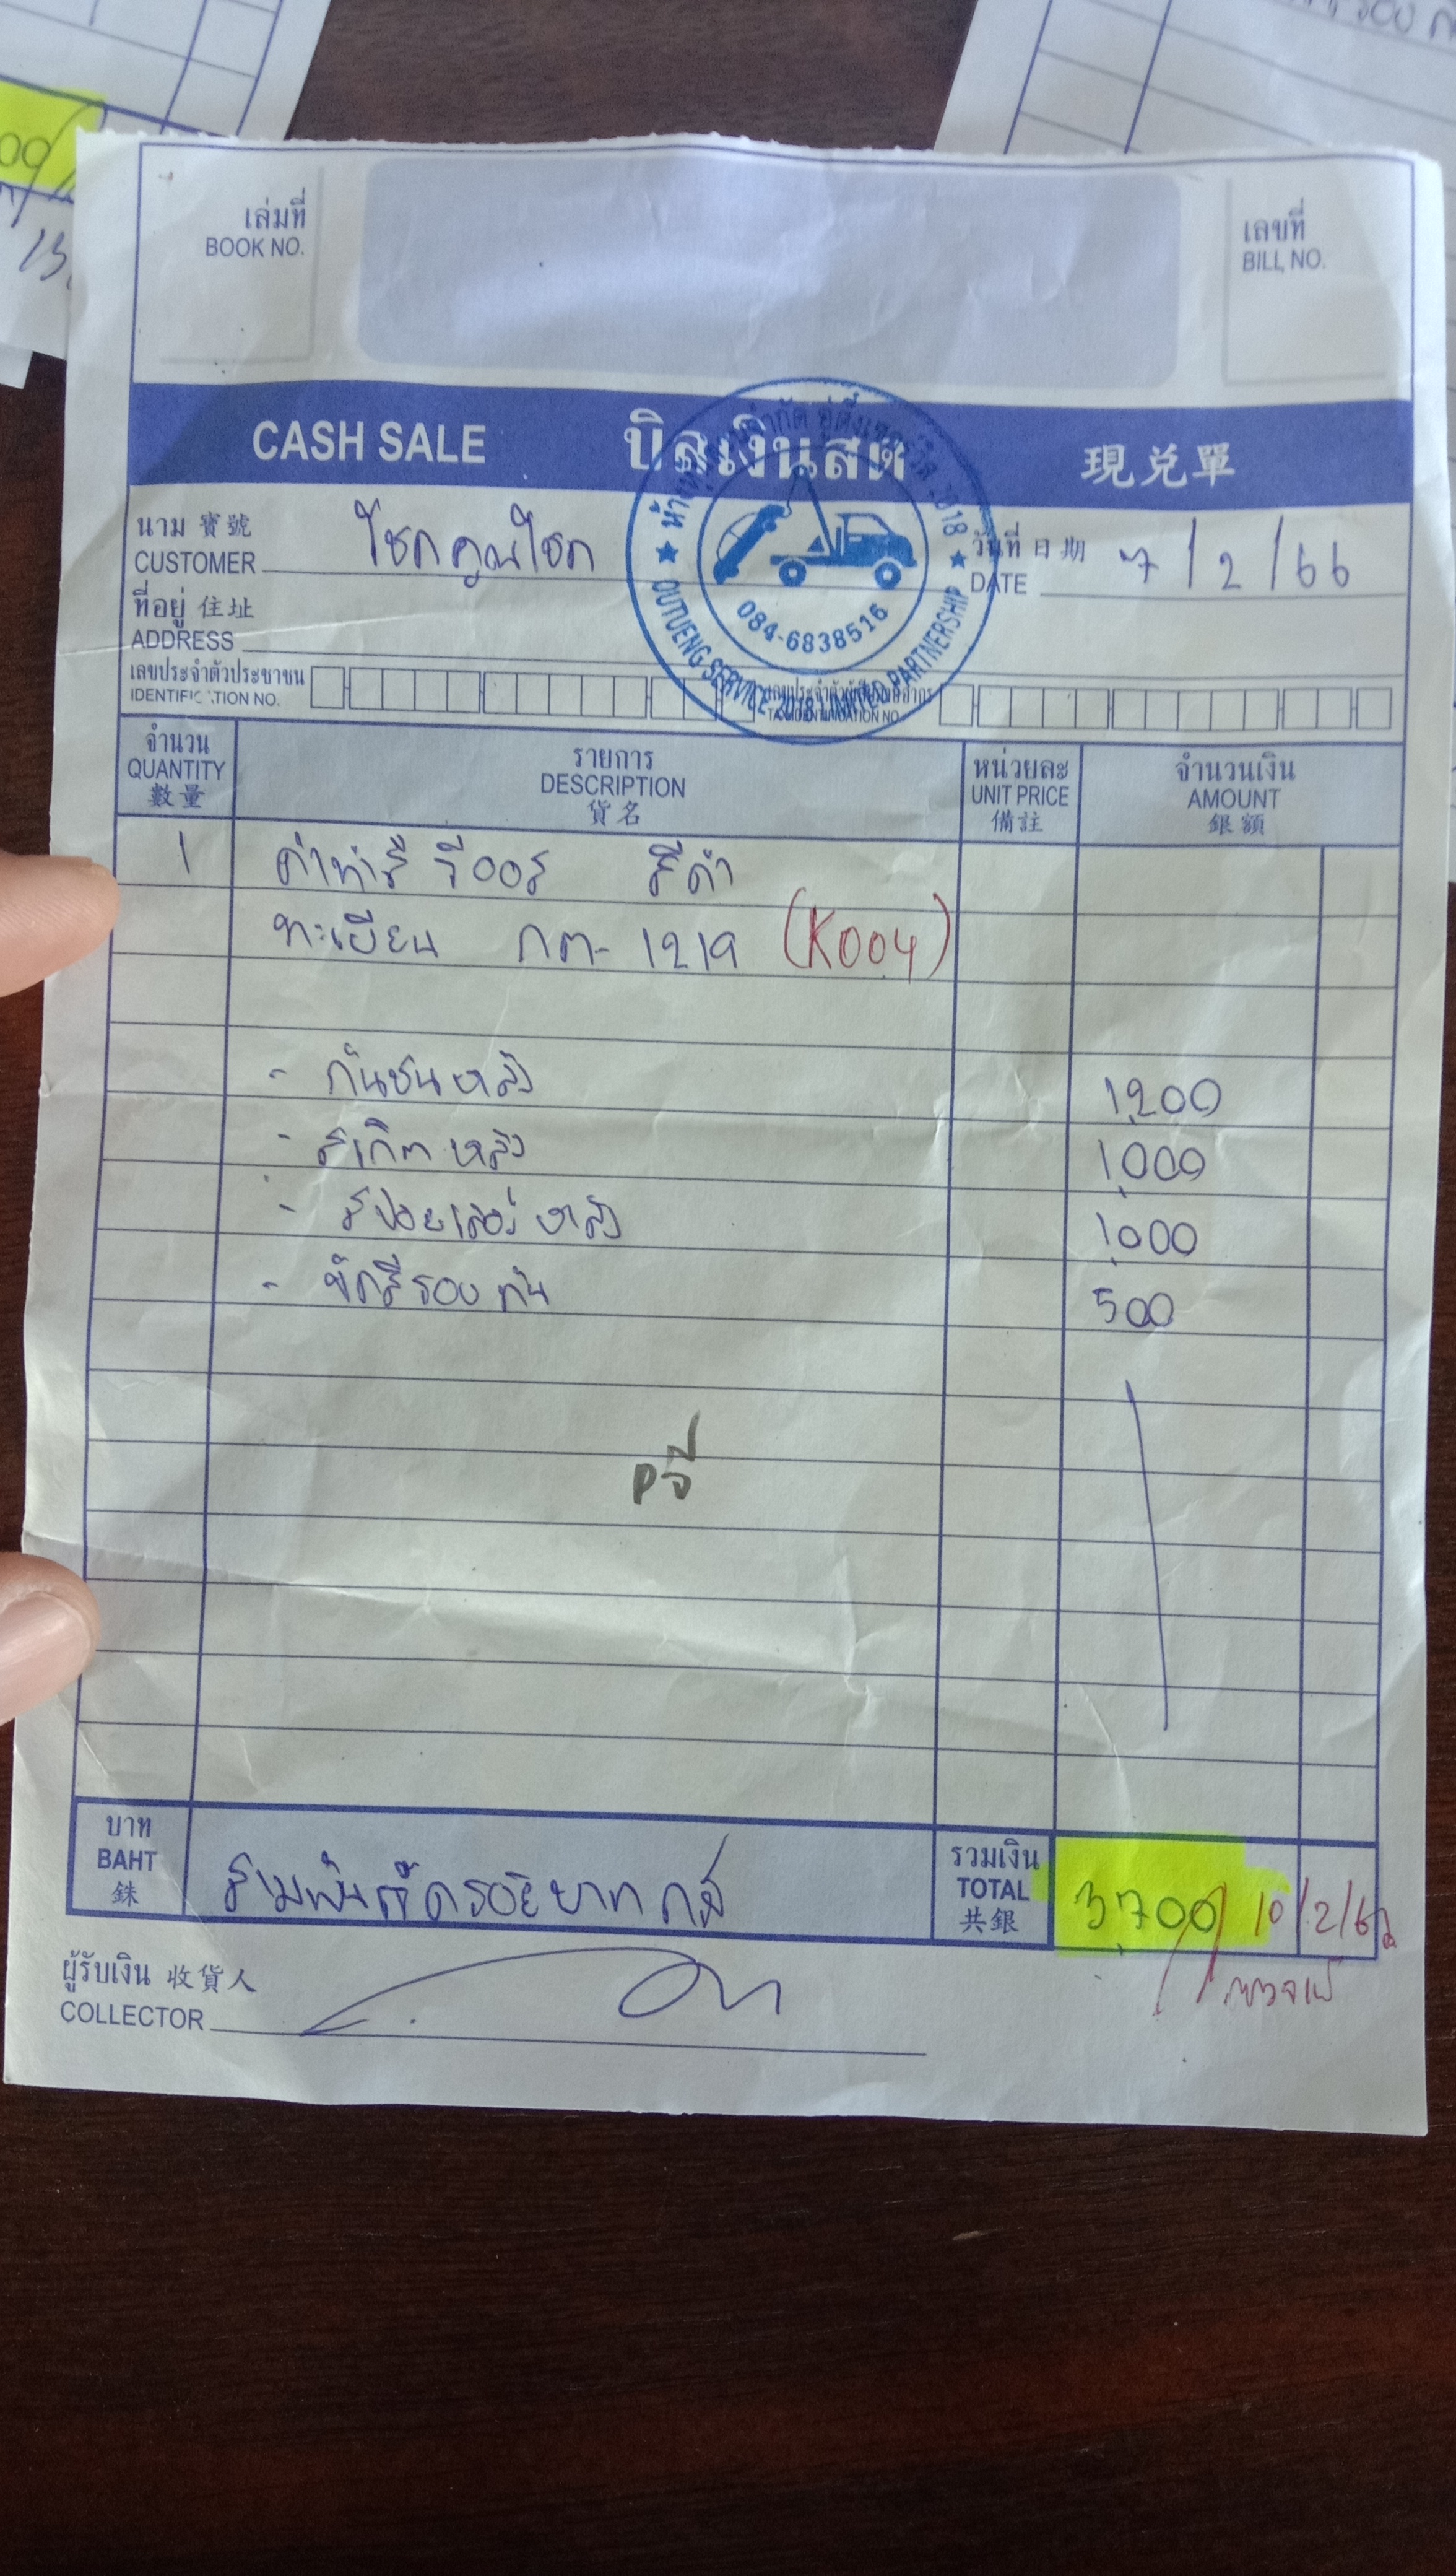 เล่มที่
BOOK NO.
เลขที่
BILL NO.
CASH SALE บิลเงินสด 現兑單
นาม 寶號
CUSTOMER โชคคูณโชค
วันที่ 日期
DATE 7/2/66
ที่อยู่ 住址
ADDRESS
084-6838516
OUTUENG SERVICE 2018 LIMITED PARTNERSHIP
เลขประจำตัวประชาชน
IDENTIFICATION NO.
เลขประจำตัวผู้เสียภาษีอากร
TAX IDENTIFICATION NO.
จำนวน
QUANTITY
數量
รายการ
DESCRIPTION
貨名
หน่วยละ
UNIT PRICE
備註
จำนวนเงิน
AMOUNT
銀額
1 ค่าทำสี รีออส สีดำ
ทะเบียน กต-1219 (K004)
- กันชนหลัง 1,200
- สเกิตหลัง 1,000
- สปอยเลอร์หลัง 1,000
- ขัดสีรอบคัน 500
Pจี
บาท
BAHT
銖
สามพันเจ็ดร้อยบาทถ้วน
รวมเงิน
TOTAL
共銀
3,700
10/2/66
ผู้รับเงิน 收貨人
COLLECTOR